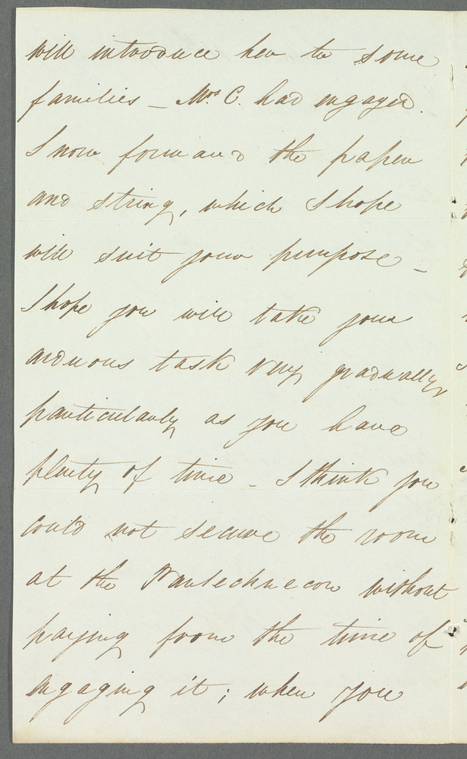 will introduce her to some
families – Mrs C. had engaged.
I now forward the paper
and string, which I hope
will suit your purpose –
I hope you will take your
arduous task very gradually,
particularly as you have
plenty of time – I think you
could not secure the room
at the Pantechnecon without
paying from the time of
engaging it; when you